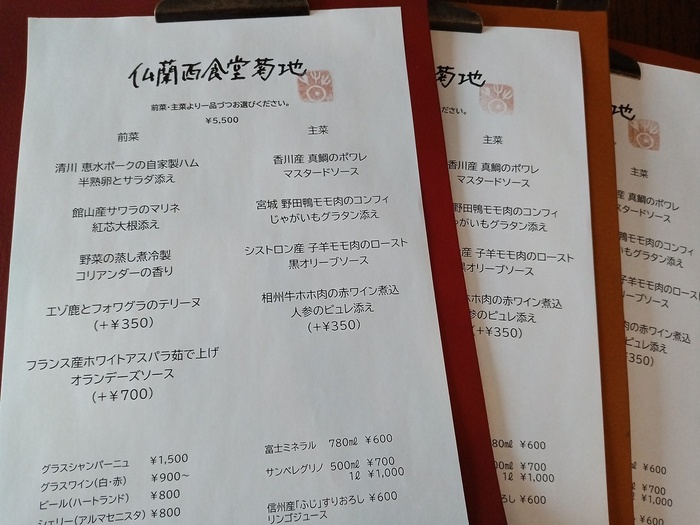 仏蘭西食堂 菊地
前菜・主菜より一品づつお選びください。
￥5,500
前菜
清川 恵水ポークの自家製ハム
半熟卵とサラダ添え
館山産サワラのマリネ
紅芯大根添え
野菜の蒸し煮冷製
コリアンダーの香り
エゾ鹿とフォワグラのテリーヌ
(+￥350)
フランス産ホワイトアスパラ茹で上げ
オランデーズソース
(+￥700)
主菜
香川産 真鯛のポワレ
マスタードソース
宮城 野田鴨モモ肉のコンフィ
じゃがいもグラタン添え
シストロン産 子羊モモ肉のロースト
黒オリーブソース
相州牛ホホ肉の赤ワイン煮込
人参のピュレ添え
(+￥350)
グラスシャンパーニュ ￥1,500
グラスワイン(白・赤) ￥900~
ビール(ハートランド) ￥800
シェリー(アルマセニスタ) ￥800
富士ミネラル 780㎖ ￥600
サンペレグリノ 500㎖ ￥700
1ℓ ￥1,000
信州産「ふじ」すりおろし ￥600
リンゴジュース
菊地
ださい。
主菜
香川産 真鯛のポワレ
マスタードソース
野田鴨モモ肉のコンフィ
がいもグラタン添え
産 子羊モモ肉のロースト
黒オリーブソース
ホホ肉の赤ワイン煮込
人参のピュレ添え
(+￥350)
80㎖ ￥600
00㎖ ￥700
1ℓ ￥1,000
ろし ￥600
地
主菜
産 真鯛のポワレ
スタードソース
鴨モモ肉のコンフィ
もグラタン添え
子羊モモ肉のロースト
リーブソース
肉の赤ワイン煮込
ピュレ添え
350)
￥600
￥700
￥1,000
￥600